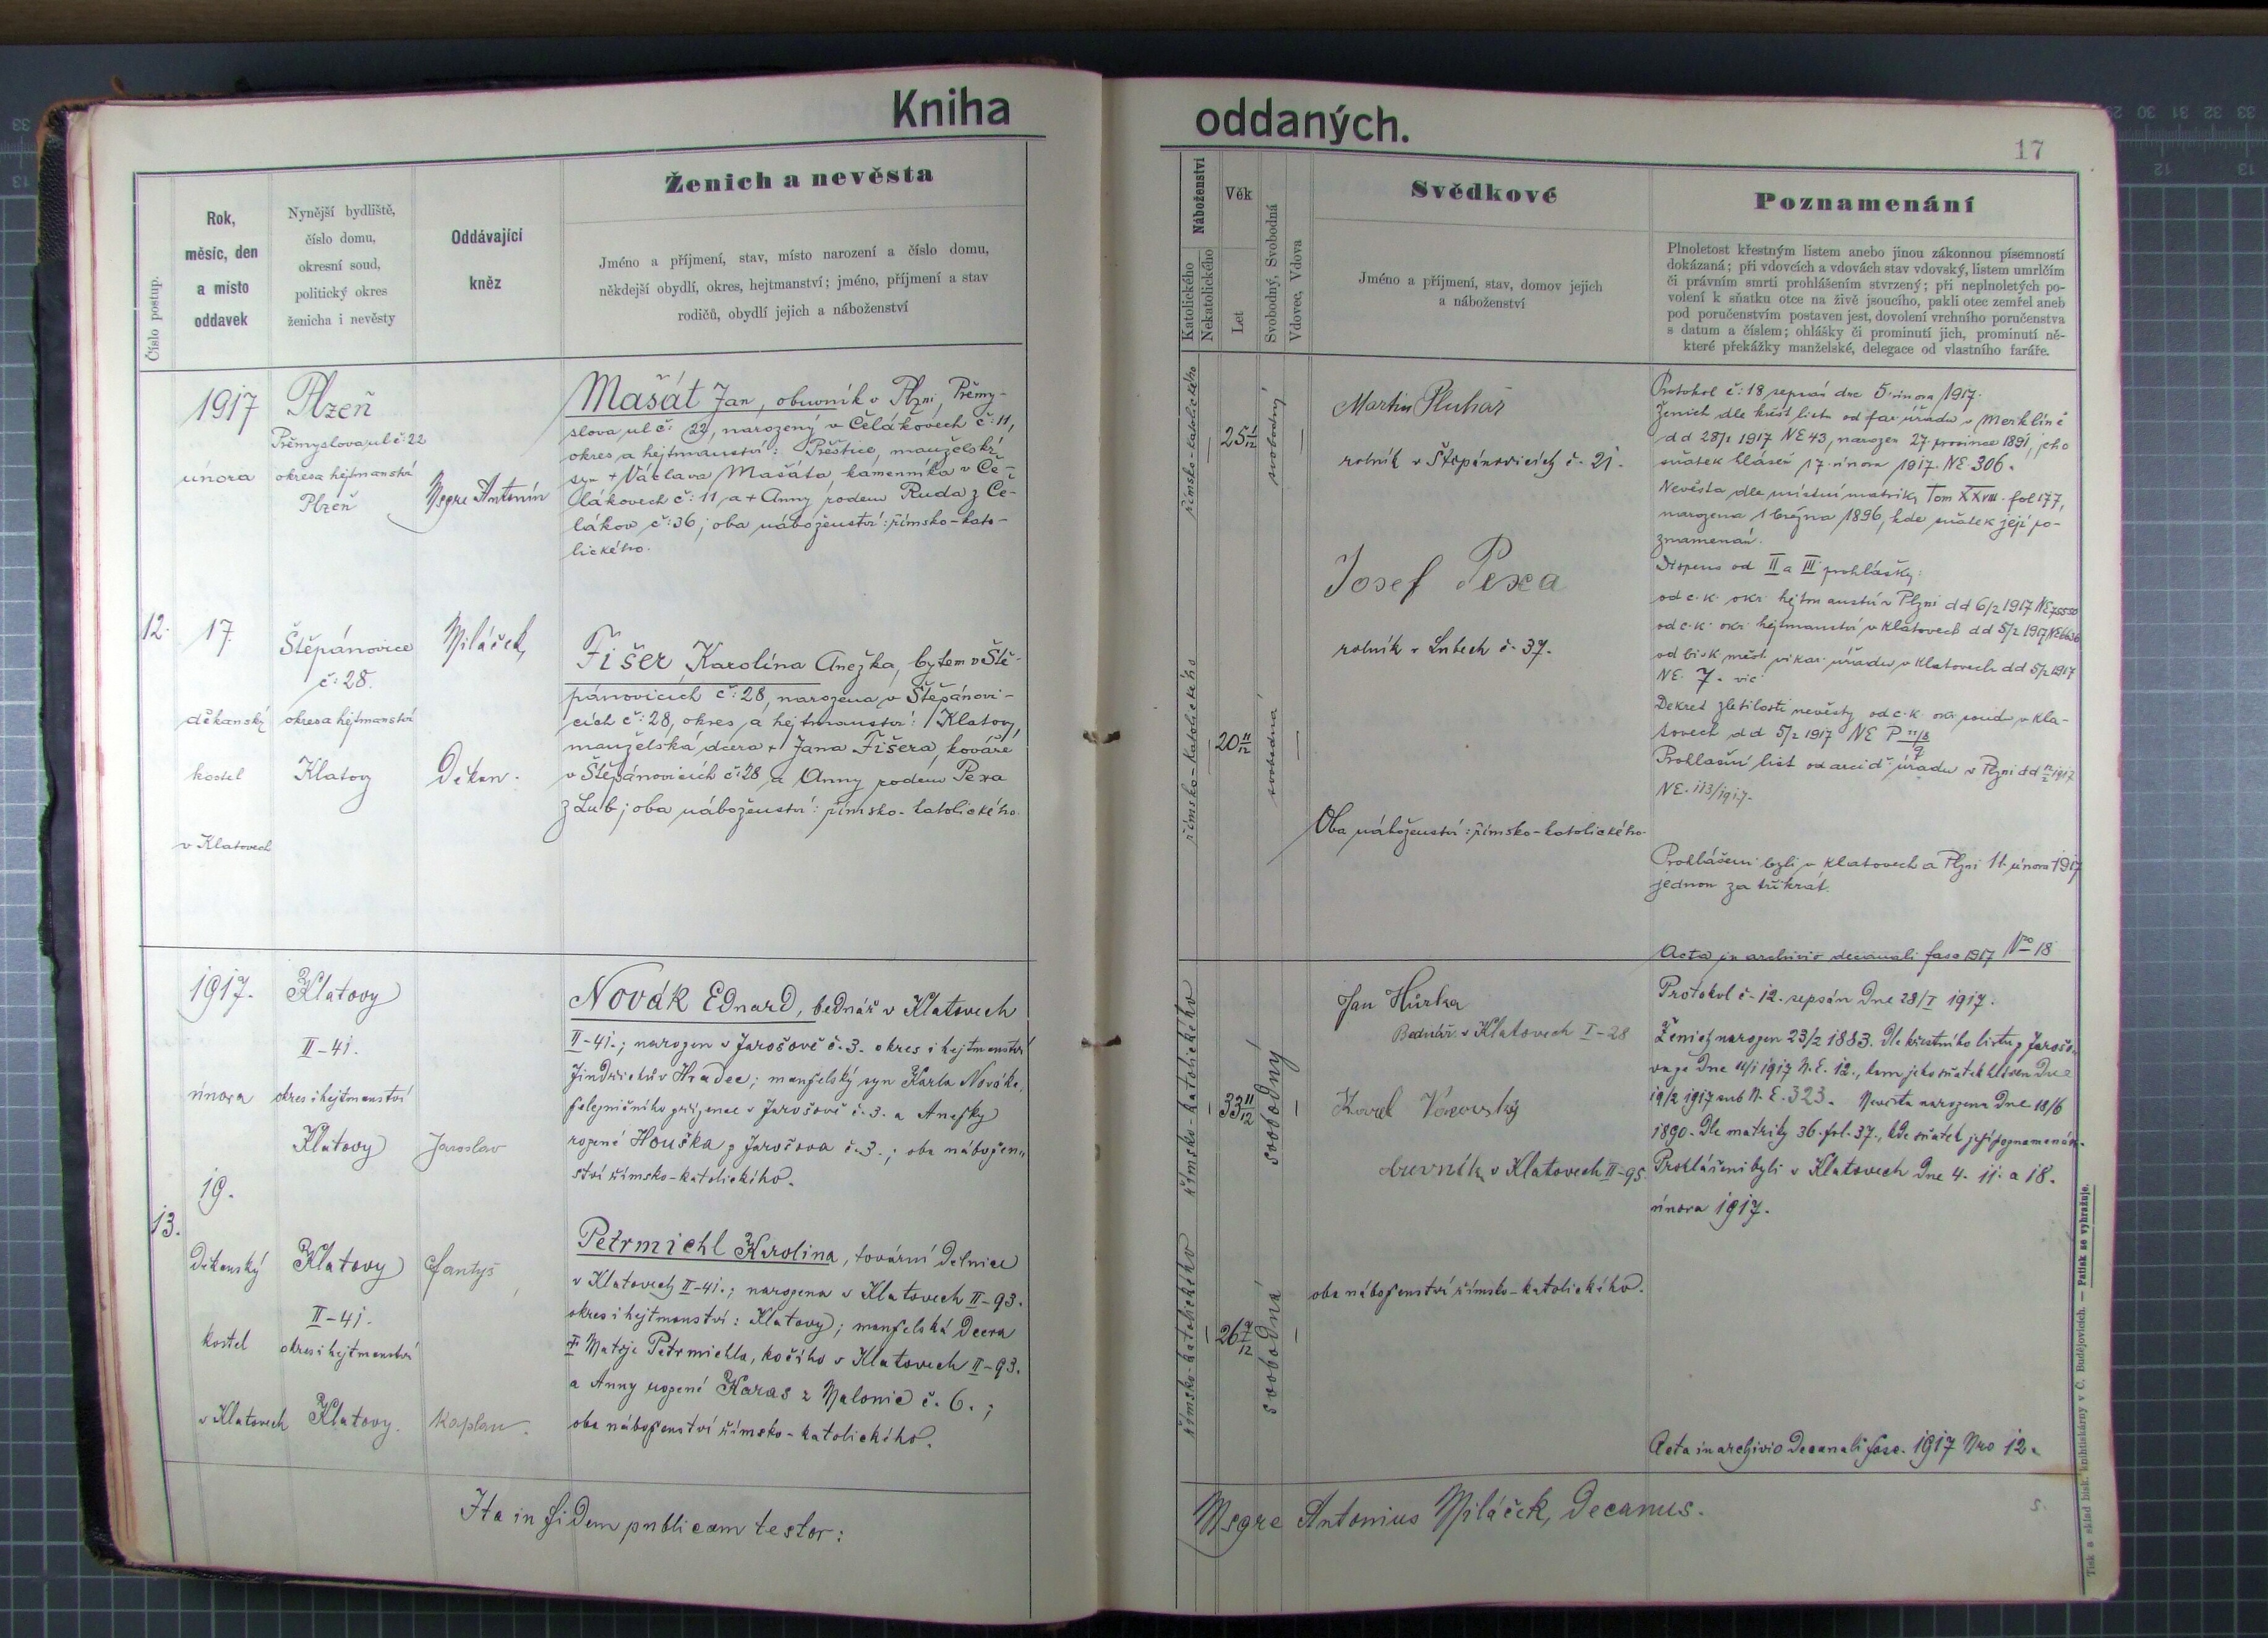 Kniha
oddaných.
17
Číslo postup.
Rok,
měsíc, den
a místo
oddavek
Nynější bydliště,
číslo domu,
okresní soud,
politický okres
ženicha i nevěsty
Oddávající
kněz
Ženich a nevěsta
Jméno a příjmení, stav, místo narození a číslo domu,
někdejší obydlí, okres, hejtmanství; jméno, příjmení a stav
rodičů, obydlí jejich a náboženství
Náboženství
Katolického
Nekatolického
Věk
Let
Svobodný, Svobodná
Vdovec, Vdova
Svědkové
Jméno a příjmení, stav, domov jejich
a náboženství
Poznamenání
Plnoletost křestným listem anebo jinou zákonnou písemností
dokázaná; při vdovcích a vdovách stav vdovský, listem umrlčím
či právním smrti prohlášením stvrzený; při neplnoletých po-
volení k sňatku otce na živě jsoucího, pakli otec zemřel aneb
pod poručenstvím postaven jest, dovolení vrchního poručenstva
s datum a číslem; ohlášky či prominutí jich, prominutí ně-
které překážky manželské, delegace od vlastního faráře.
12.
1917
února
17.
děkanský
kostel
v Klatovech
Plzeň
Přemyslova ul č: 22
okres a hejtmanství
Plzeň
Štěpánovice
č: 28.
okres a hejtmanství
Klatovy
Msgre Antonín
Miláček,
Děkan.
Mašát Jan, obuvník v Plzni, Přemy-
slova ul č: 22, narozený v Čelákovech č: 11,
okres a hejtmanství: Přeštice, manželský
syn + Václava Mašáta, kamenníka v Če-
lákovech č: 11 a + Anny rodem Ruda z Če-
lákov č: 36; oba náboženství: římsko-kato-
lického.
Fišer Karolína Anežka, bytem v Ště-
pánovicích č: 28, narozena v Štěpánovi-
cích č: 28, okres a hejtmanství: Klatovy,
manželská dcera + Jana Fišera, kováře
v Štěpánovicích č: 28 a Anny rodem Pexa
z Lub; oba náboženství: římsko-katolického.
římsko-katolického
25 1/12
svobodný
římsko-katolického
20 11/12
svobodná
Martin Pluhař
rolník v Štěpánovicích č. 21.
Josef Pexa
rolník v Lubech č. 37.
Oba náboženství: římsko-katolického.
Protokol č: 18 sepsán dne 5. února 1917.
Ženich dle křest listu od far úřadu v Merklíně
dd 28/1 1917 NE 43, narozen 27. prosince 1891, jeho
sňatek hlášen 17. února 1917. NE 306.
Nevěsta dle místní matriky Tom XXVIII. fol 177,
narozena 1. března 1896, kde sňatek její po-
znamenán.
Dispens od II a III prohlášky:
od c. k. okr. hejtmanství v Plzni dd 6/2 1917
od c. k. okr. hejtmanství v Klatovech dd 5/2 1917
od bisk měst. vikar. úřadu v Klatovech dd 5/2 1917
NE. 7. vic
Dekret zletilosti nevěsty od c. k. okr. soudu v Kla-
tovech dd 5/2 1917 NE P 11/8
9
Prohlašní list od arciď úřadu v Plzni dd 12/2 1917
NE. 113/1917.
Prohlášeni byli v Klatovech a Plzni 11. února 1917
jednou za třikrát.
Acta in archivio decanali fasc 1917 No 18
13.
1917.
února
19.
Děkanský
kostel
v Klatovech
Klatovy
II-41.
okres i hejtmanství
Klatovy
Klatovy
II-41.
okres i hejtmanství
Klatovy.
Jaroslav
Fantyš,
Kaplan.
Novák Eduard, bednář v Klatovech
II-41.; narozen v Jarošově č. 3. okres i hejtmanství
Jindřichův Hradec; manželský syn Karla Nováka,
železničního zřízence v Jarošově č. 3. a Anežky
rozené Houška z Jarošova č. 3.; oba nábožen-
ství římsko-katolického.
Petrmichl Karolina, tovární dělnice
v Klatovech II-41.; narozena v Klatovech II-93.
okres i hejtmanství: Klatovy; manželská dcera
+ Matěje Petrmichla, kočího v Klatovech II-93.
a Anny rozené Karas z Malonic č. 6.;
oba náboženství římsko-katolického.
římsko-katolického
33 11/12
svobodný
římsko-katolického
26 7/12
svobodná
Jan Hůrka
Bednář v Klatovech I-28
Karel Vonovský
obuvník v Klatovech II-95.
oba náboženství římsko-katolického.
Protokol č. 12. sepsán dne 28/I 1917.
Ženich narozen 23/2 1883. Dle křestního listu z Jarošo-
va ze dne 11/1 1917 N. E. 12., kam jeho sňatek hlášen dne
19/2 1917 sub N. E. 323. Nevěsta narozena dne 18/6
1890. Dle matriky 36. fol. 37., kde sňatek její poznamenán.
Prohlášeni byli v Klatovech dne 4. 11. a 18.
února 1917.
Acta in archivio decanali fasc. 1917 Nro 12.
Ita in fidem publicam testor:
Msgre Antonius Miláček, Decanus.
Tisk a sklad bisk. knihtiskárny v Č. Budějovicích. — Patisk se vyhražuje.